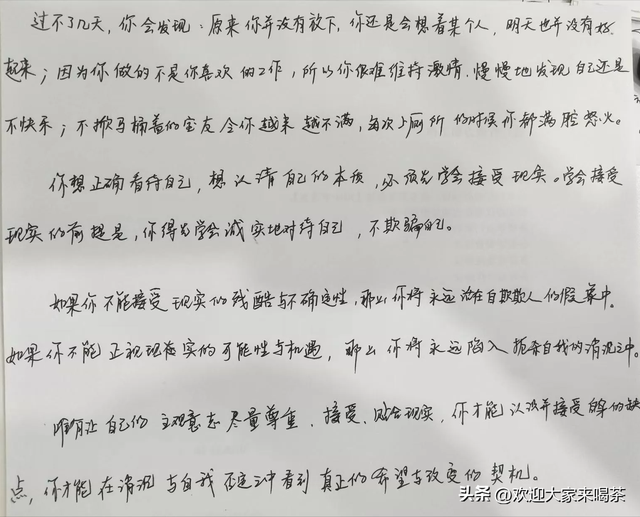 过不了几天，你会发现：原来你并没有放下，你还是会想着某个人，明天也并没有好
起来；因为你做的不是你喜欢的工作，所以你很难维持激情，慢慢地发现自己还是
不快乐；不掀马桶盖的室友令你越来越不满，每次上厕所的时候你都满腔怒火。
你想正确看待自己，想认清自己的本质，必须先学会接受现实。学会接受
现实的前提是，你得先学会诚实地对待自己，不欺骗自己。
如果你不能接受现实的残酷与不确定性，那么你将永远活在自欺欺人的假象中。
如果你不能正视现在实的可能性与机遇，那么你将永远陷入扼杀自我的消沉之中。
唯有让自己的主观意志尽量尊重、接受、贴合现实，你才能认识并接受的缺
点，你才能在消沉与自我否定之中看到真正的希望与改变的契机。
头条 @欢迎大家来喝茶